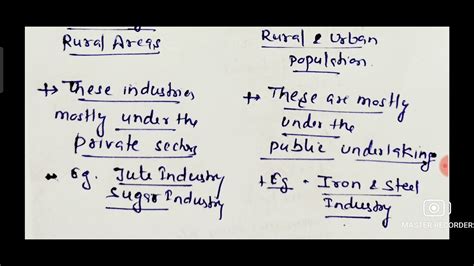 Rural Areas
These industries
mostly under the
private sectors
eg. Jute Industry
Sugar Industry
Rural & Urban
population
These are mostly
under the
public undertakings
Eg - Iron & Steel
Industry
MASTER RECORDER